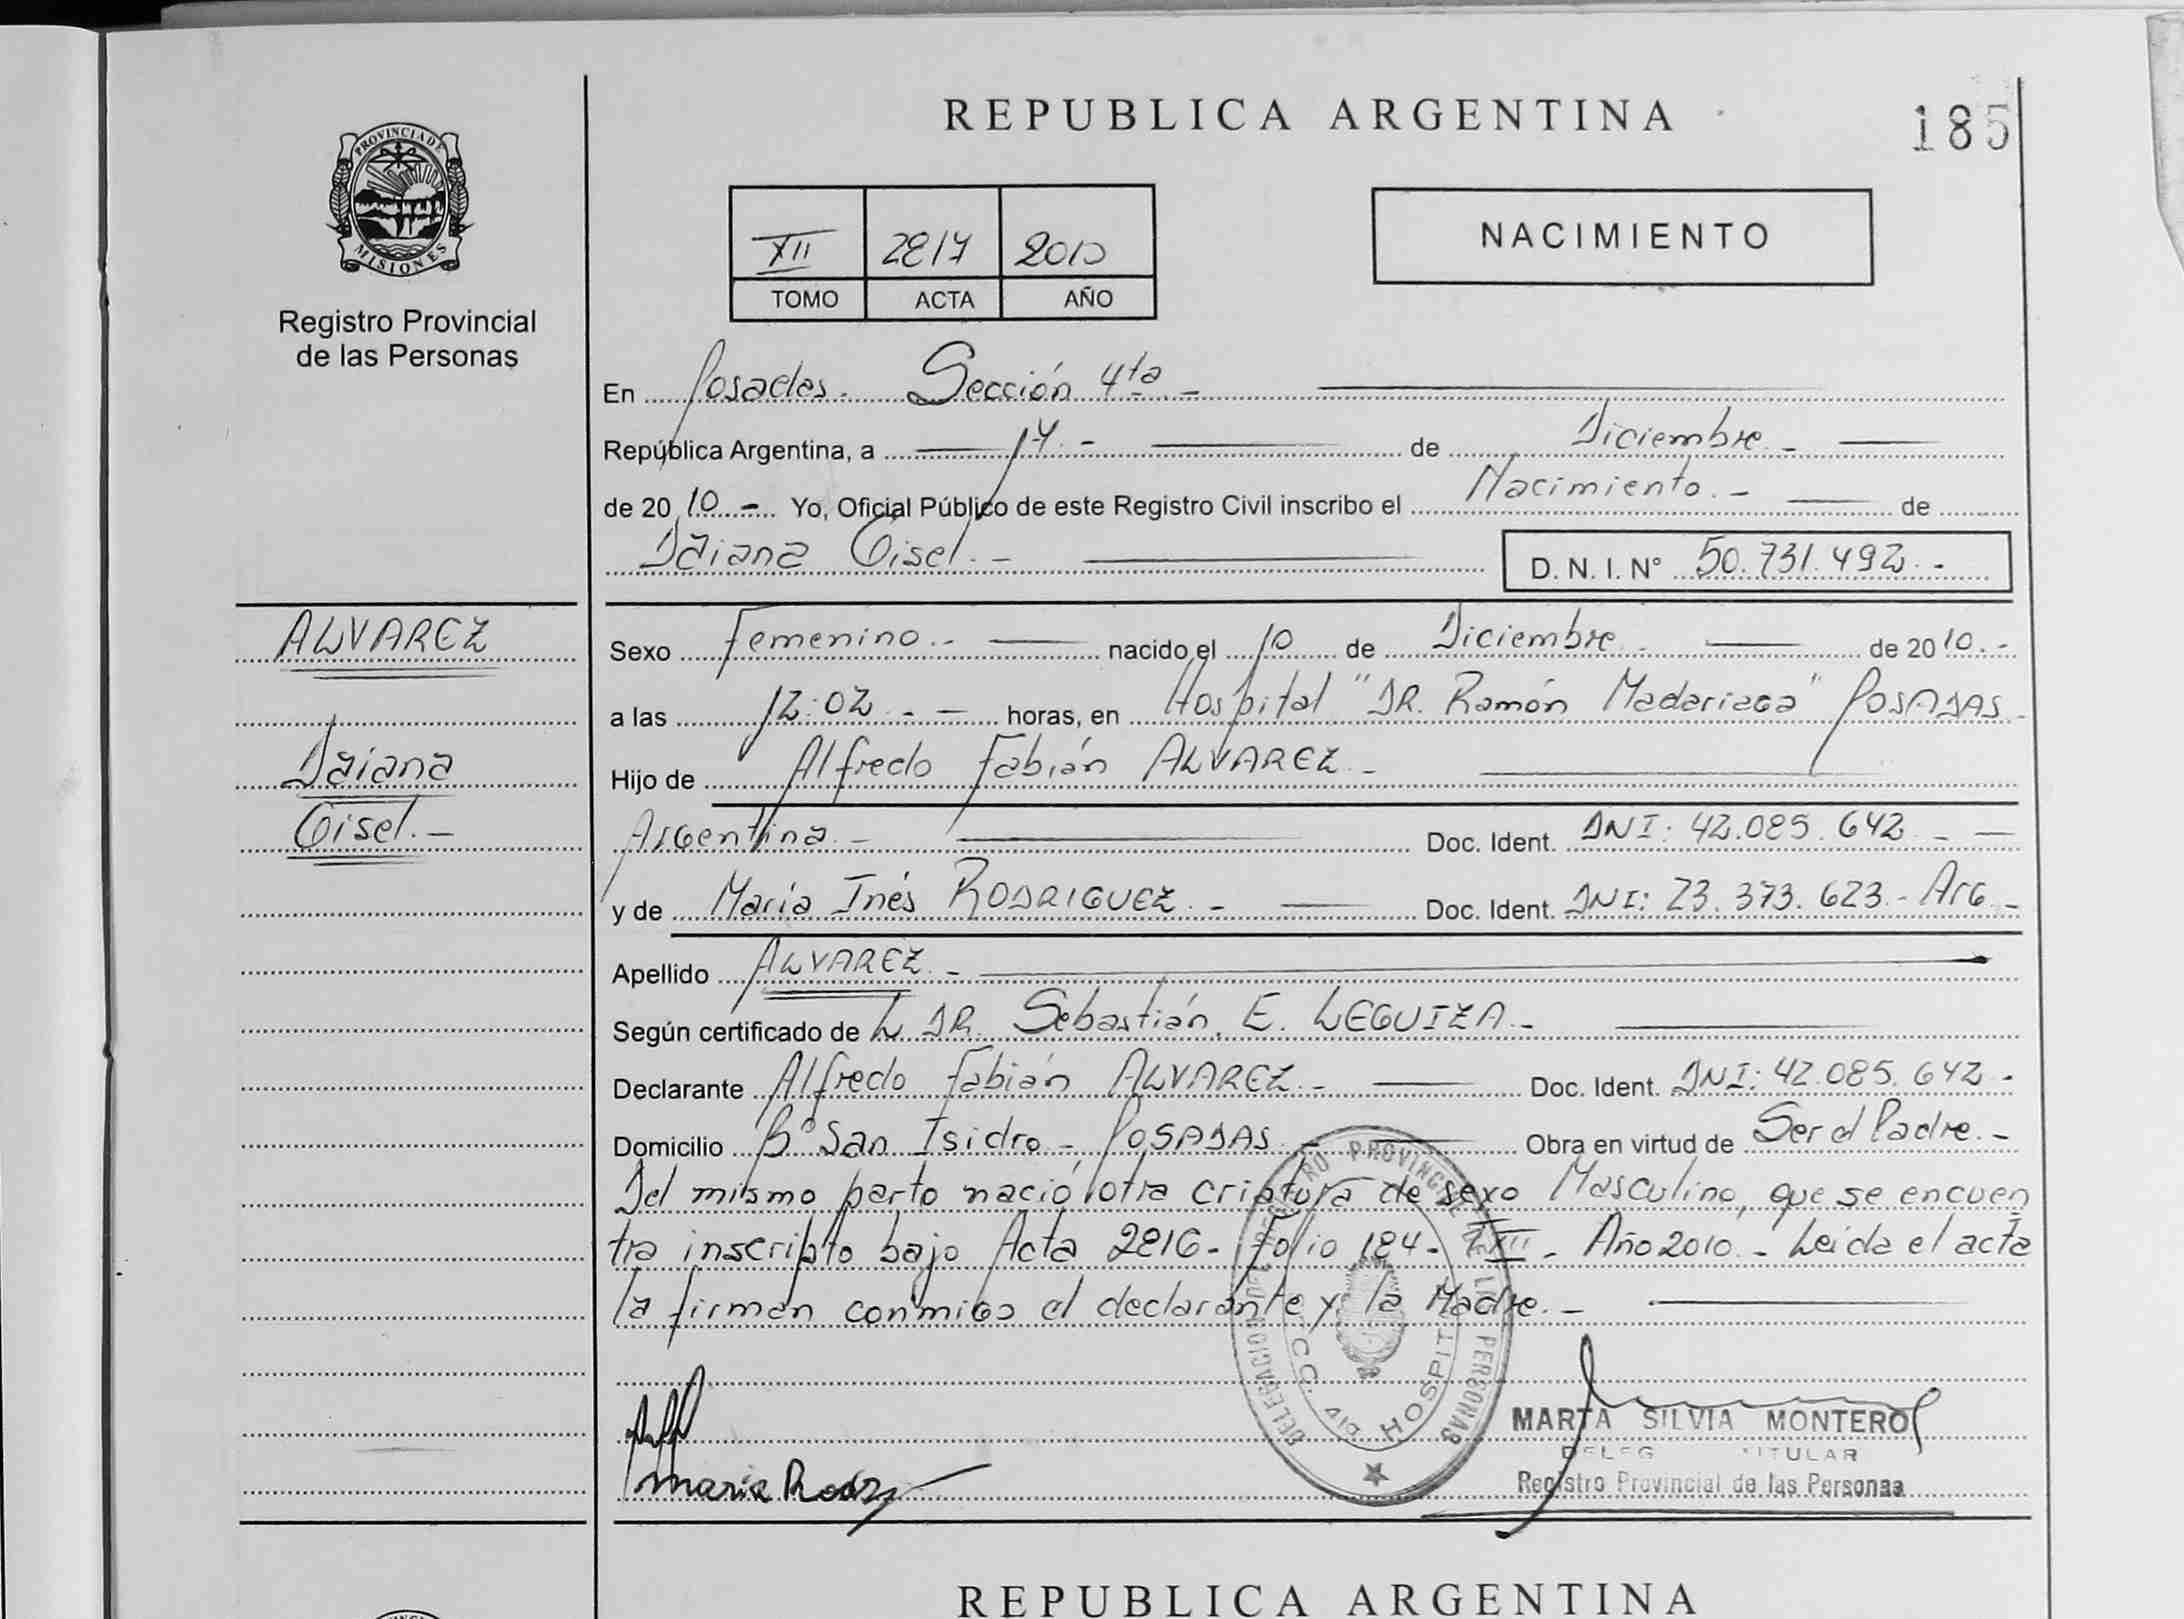 REPUBLICA ARGENTINA
185
PROVINCIA DE
MISIONES
Registro Provincial
de las Personas
XII 2817 2010
TOMO ACTA AÑO
NACIMIENTO
En Posadas. Sección 4ta.-
República Argentina, a 14.- de Diciembre.-
de 2010.- Yo, Oficial Público de este Registro Civil inscribo el Nacimiento.- de
Daiana Gisel.- D. N. I. N° 50.731.492.-
ALVAREZ
Daiana
Gisel.-
Sexo Femenino.- nacido el 10 de Diciembre.- de 2010.-
a las 12:02.- horas, en Hospital "DR. Ramón Madariaga" POSADAS-
Hijo de Alfredo Fabián ALVAREZ.-
Argentina.- Doc. Ident. DNI: 42.085.642.-
y de María Inés RODRIGUEZ.- Doc. Ident. DNI: 23.373.623.- Arg.-
Apellido ALVAREZ.-
Según certificado de L DR. Sebastián. E. LEGUIZA.-
Declarante Alfredo Fabián ALVAREZ.- Doc. Ident. DNI: 42.085.642.-
Domicilio B° San Isidro - POSADAS.- Obra en virtud de Ser el Padre.-
Del mismo parto nació otra criatura de sexo Masculino, que se encuen
tra inscripto bajo Acta 2816- Folio 184- TXII- Año 2010.- Leida el acta
la firman conmigo el declarante y la Madre.-
DELEGACION DEL REGISTRO PROVINCIAL DE LAS PERSONAS
SECC. 4ta HOSPITAL
Maria Rodz
MARTA SILVIA MONTERO
DELEG TITULAR
Registro Provincial de las Personas
REPUBLICA ARGENTINA